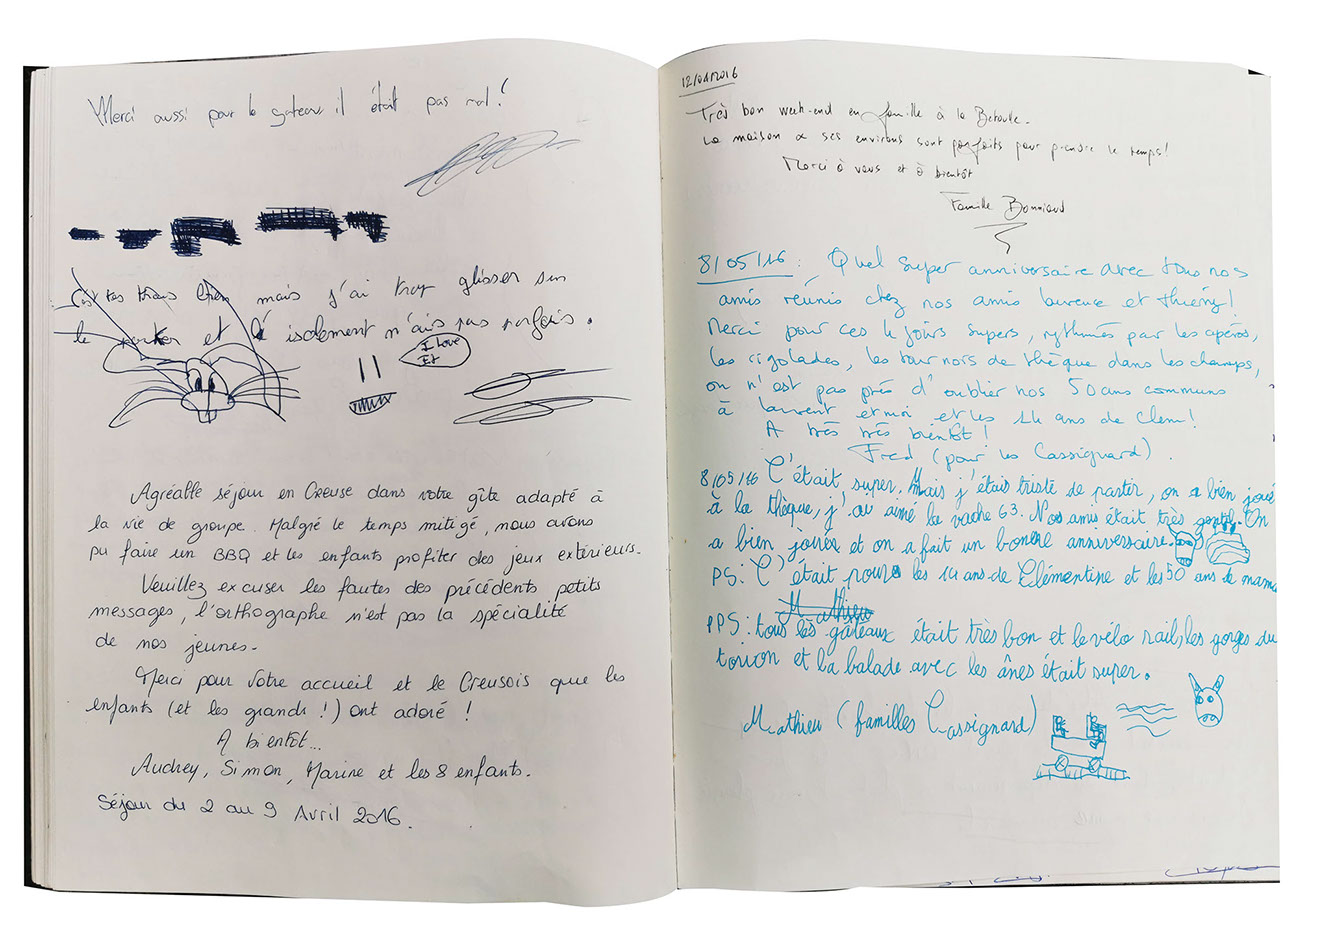 Merci aussi pour le gateau il était pas mal!
tes trans bien mais j'ai trop glisser sur
le et l' isolement n'ais pas parfais.
I love
Et
Agréable séjour en Creuse dans votre gîte adapté à
la vie de groupe. Malgré le temps mitigé, nous avons
pu faire un BBQ et les enfants profiter des jeux extérieurs.
Veuillez excuser les fautes des précédents petits
messages, l'orthographe n'est pas la spécialité
de nos jeunes.
Merci pour votre accueil et le Creusois que les
enfants (et les grands!) ont adoré!
A bientôt...
Audrey, Simon, Marine et les 8 enfants.
Séjour du 2 au 9 Avril 2016.
12/04/2016
Très bon week-end en famille à la Betoulle.
La maison & ses environs sont parfaits pour prendre le temps!
Merci à vous et à bientôt
Famille Bonniaud
8/05/16 : Quel super anniversaire avec tous nos
amis réunis chez nos amis laurence et thierry!
Merci pour ces 4 jours supers, rythmés par les apéros,
les rigolades, les tournois de thèque dans les champs,
on n'est pas prêt d'oublier nos 50 ans communs
à laurent et moi et les 14 ans de Clem!
A très très bientôt!
Fred (pour les Cassignard).
8/05/16 C'était super, Mais j'étais triste de partir, on a bien joué
à la thèque, j'ai aimé la vache 63. Nos amis était très gentil. On
a bien jouée et on a fait un bonne anniversaire.
PS: C'était pour les 14 ans de Clémentine et les 50 ans de maman
Mathieu
PPS: tous les gâteaux était très bon et le vélo rail, les gorges du
torion et la balade avec les ânes était super.
Mathieu (familles Cassignard)